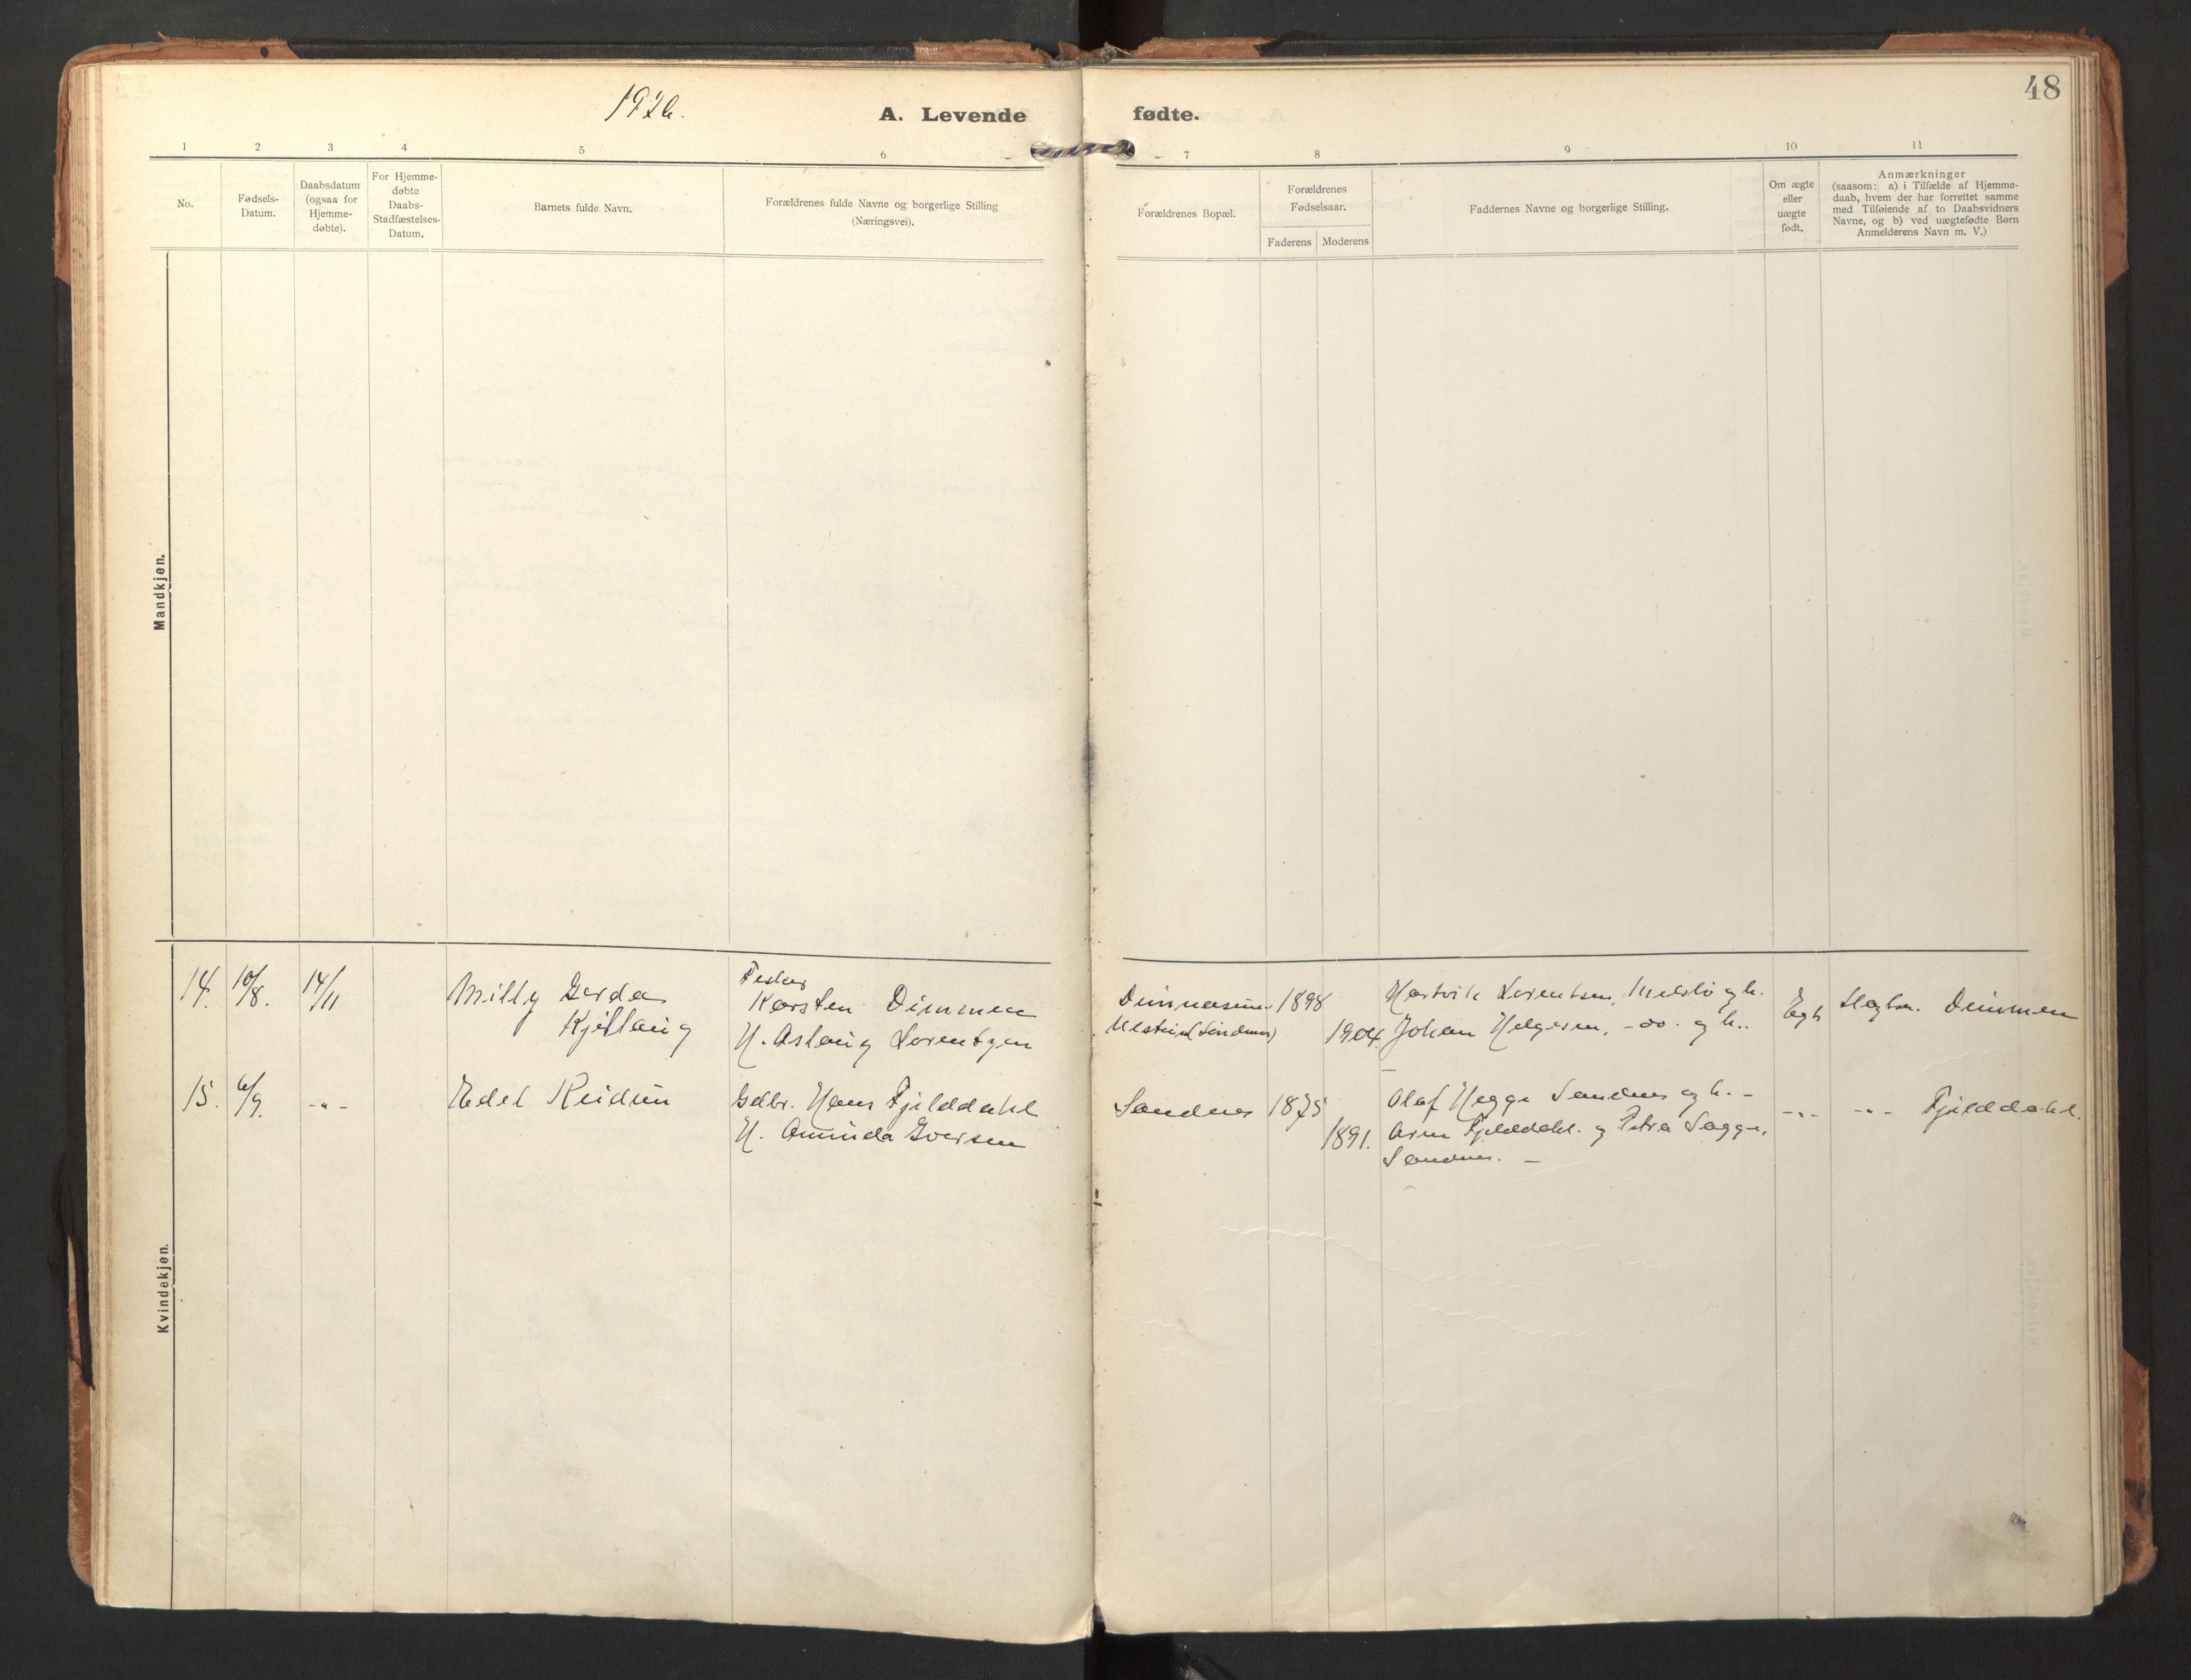 48
1926.
A. Levende fødte.
1 2 3 4 5 6 7 8 9 10 11
No.
Fødsels-
Datum.
Daabsdatum
(ogsaa for
Hjemme-
døbte).
For Hjemme-
døbte
Daabs-
Stadfæstelses-
Datum.
Barnets fulde Navn.
Forældrenes fulde Navne og borgerlige Stilling
(Næringsvei).
Forældrenes Bopæl.
Forældrenes
Fødselsaar.
Faderens Moderens
Faddernes Navne og borgerlige Stilling.
Om ægte
eller
uægte
født.
Anmærkninger
(saasom: a) i Tilfælde af Hjemme-
daab, hvem der har forrettet samme
med Tilføiende af to Daabsvidners
Navne, og b) ved uægtefødte Børn
Anmelderens Navn m. V.)
Mandkjøn.
Kvindekjøn.
14. 10/8. 14/11
Milly Gerda
Kjellaug
Fisker
Karsten Dimmen
H. Aslaug Lorentzen
1898
1904.
Hartvik Lorentsen, og h.
Johan Helgesen, -do- og h..
Egte
Dimmen
15. 6/9. -"-
Edel Reidun
Gdbr. Hans Fjelddahl
H. Aminda Iversen
Sandnes
1875
1891.
Olaf Hegge Sandnes og h. -
Arne Fjelddahl. og Petra Sagge,
Sandnes. -
-"- -"- Fjelddahl.